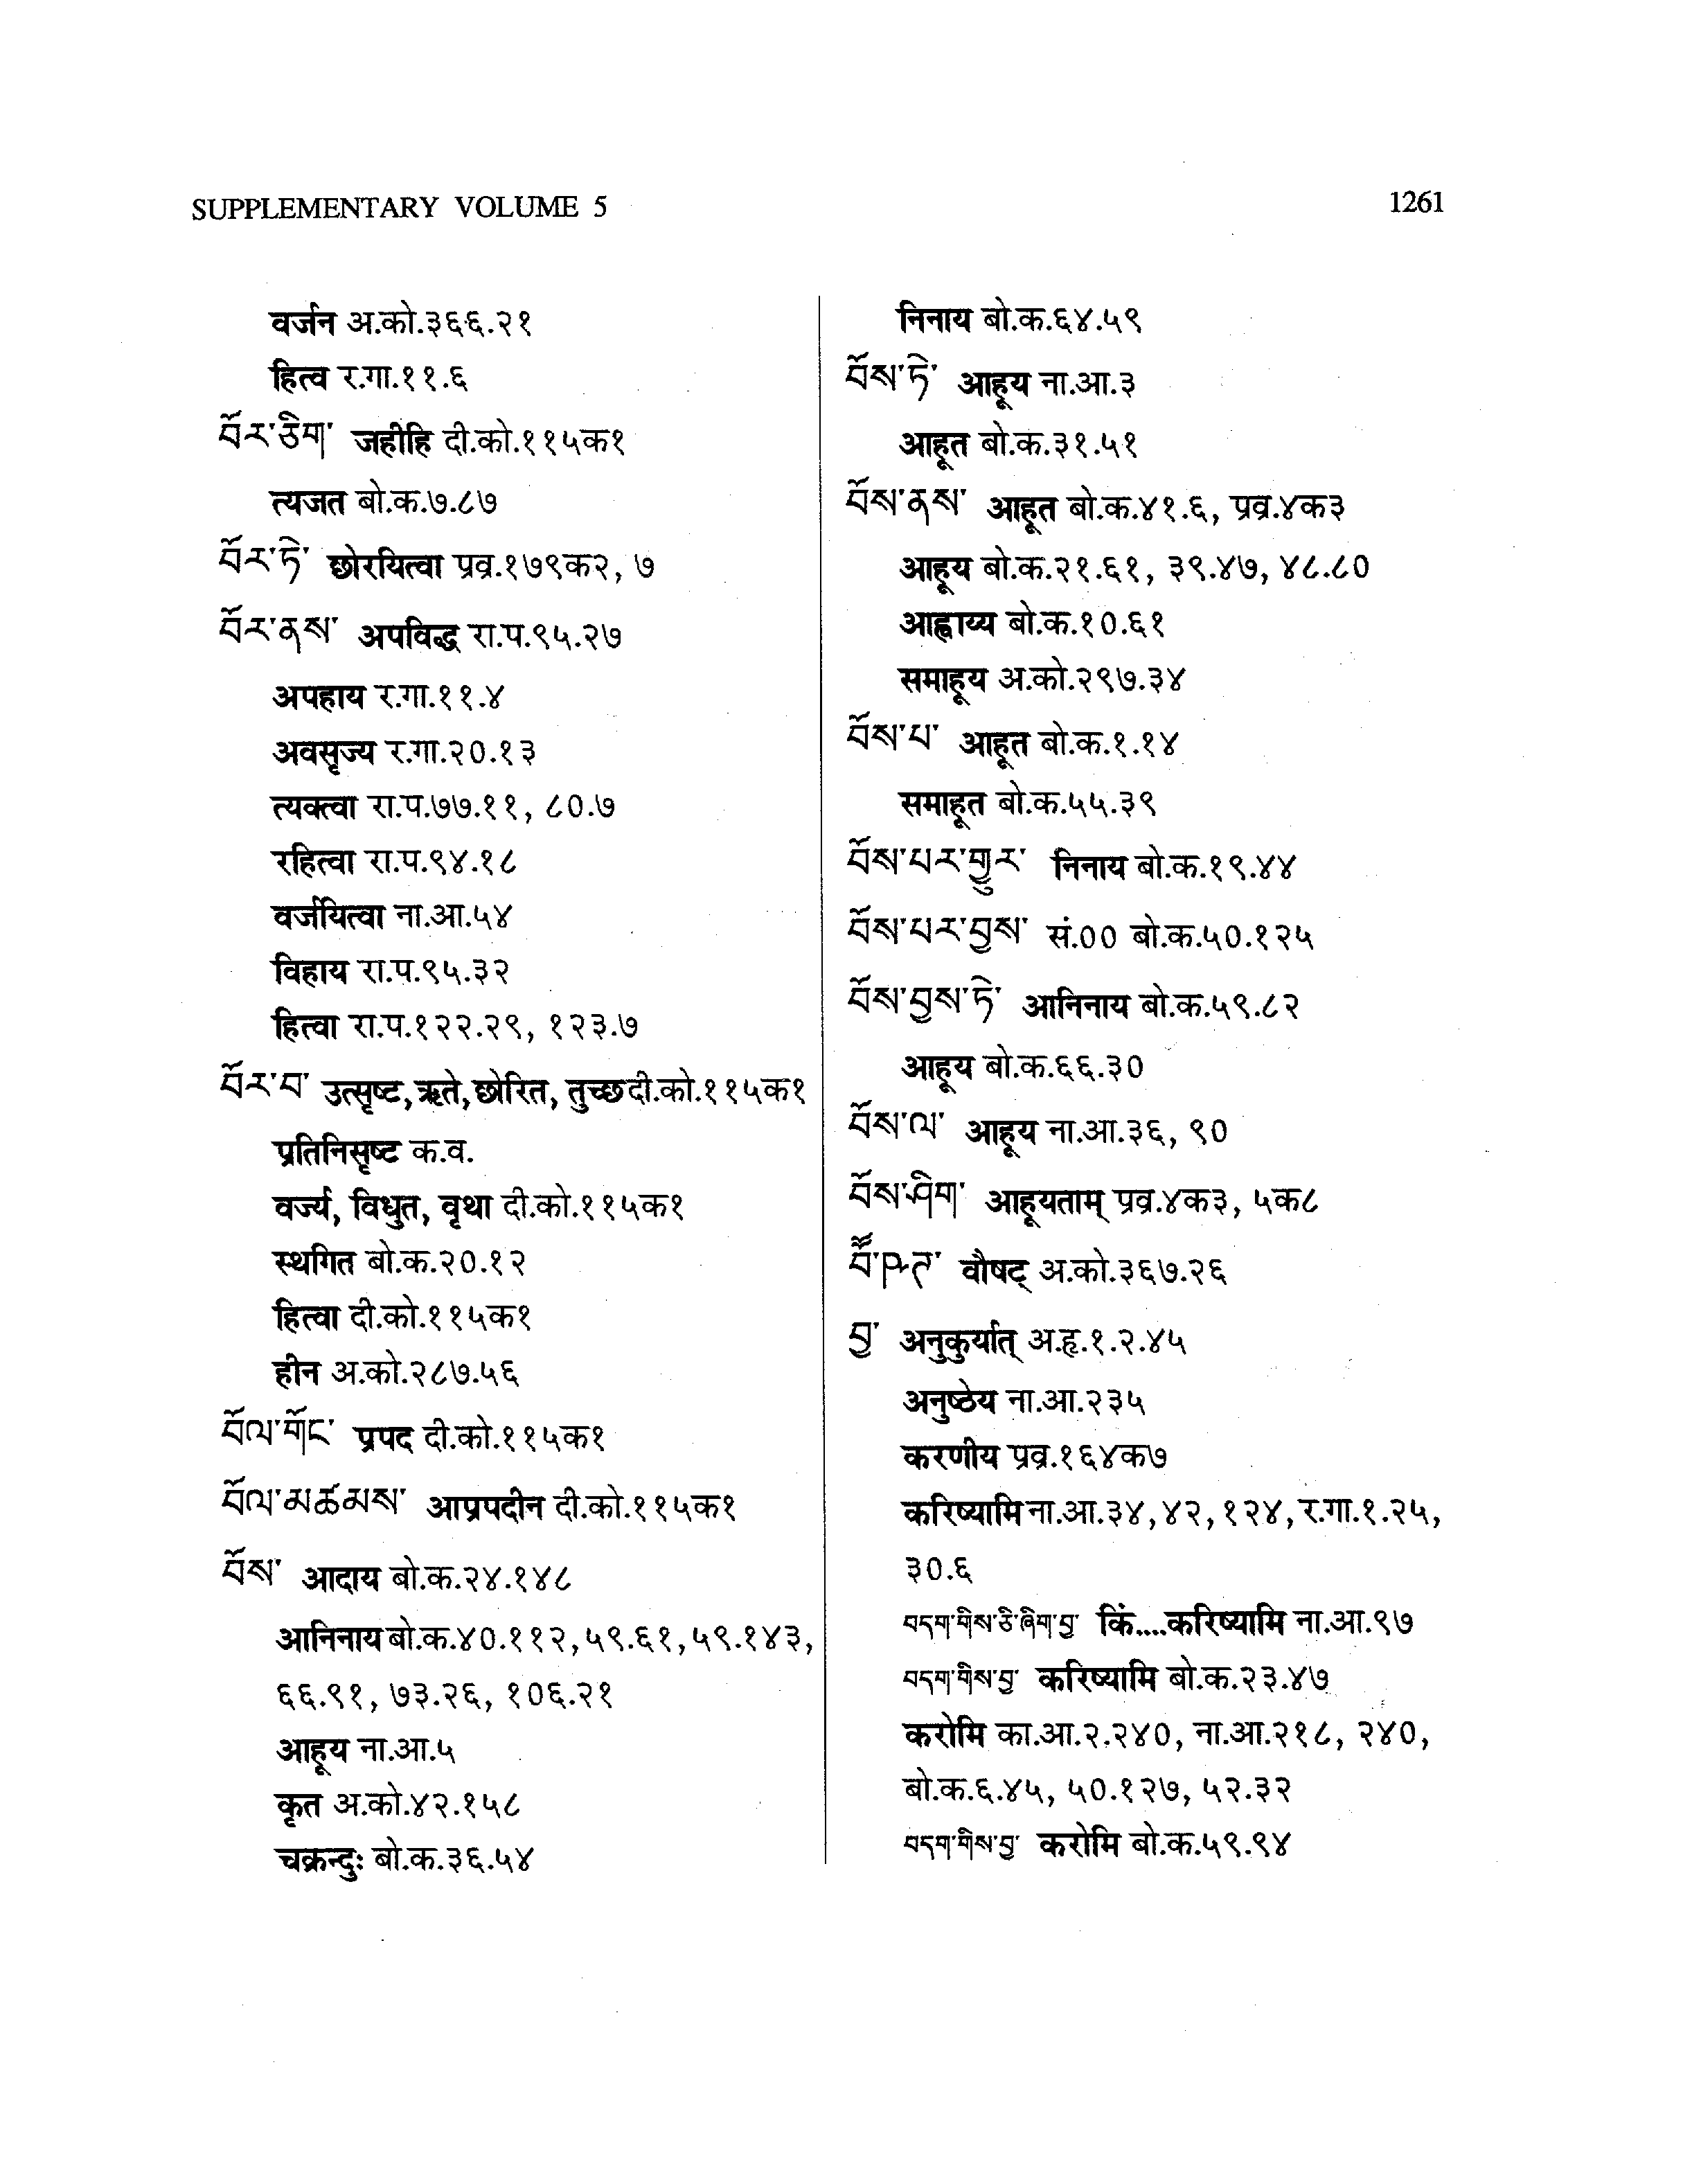 SUPPLEMENTARY VOLUME 5
1261
वर्जन अ.को.३६६.२१
हित्व र.गा.११.६
བོར་ཅིག་ जहीहि दी.को.११५क१
त्यजत बो.क.७.८७
བོར་ཏེ་ छोरयित्वा प्रव्र.१७९क२, ७
བོར་ནས་ अपविद्ध रा.प.९५.२७
अपहाय र.गा.११.४
अवसृज्य र.गा.२०.१३
त्यक्त्वा रा.प.७७.११, ८०.७
रहित्वा रा.प.९४.१८
वर्जयित्वा ना.आ.५४
विहाय रा.प.९५.३२
हित्वा रा.प.१२२.२९, १२३.७
བོར་བ་ उत्सृष्ट, ऋते, छोरित, तुच्छ दी.को.११५क१
प्रतिनिसृष्ट क.व.
वर्ज्य, विधुत, वृथा दी.को.११५क१
स्थगित बो.क.२०.१२
हित्वा दी.को.११५क१
हीन अ.को.२८७.५६
བོལ་གོང་ प्रपद दी.को.११५क१
བོལ་མཚམས་ आप्रपदीन दी.को.११५क१
བོས་ आदाय बो.क.२४.१४८
आनिनाय बो.क.४०.११२, ५९.६१, ५९.१४३,
६६.९१, ७३.२६, १०६.२१
आहूय ना.आ.५
कृत अ.को.४२.१५८
चक्रन्दुः बो.क.३६.५४
निनाय बो.क.६४.५९
བོས་ཏེ་ आहूय ना.आ.३
आहूत बो.क.३१.५१
བོས་ནས་ आहूत बो.क.४१.६, प्रव्र.४क३
आहूय बो.क.२१.६१, ३९.४७, ४८.८०
आह्वाय्य बो.क.१०.६१
समाहूय अ.को.२९७.३४
བོས་པ་ आहूत बो.क.१.१४
समाहूत बो.क.५५.३९
བོས་པར་གྱུར་ निनाय बो.क.१९.४४
བོས་པར་བྱས་ सं.०० बो.क.५०.१२५
བོས་བྱས་ཏེ་ आनिनाय बो.क.५९.८२
आहूय बो.क.६६.३०
བོས་ལ་ आहूय ना.आ.३६, ९०
བོས་ཤིག་ आहूयताम् प्रव्र.४क३, ५क८
བཽ་ཥཊ་ वौषट् अ.को.३६७.२६
བྱ་ अनुकुर्यात् अ.हृ.१.२.४५
अनुष्ठेय ना.आ.२३५
करणीय प्रव्र.१६४क७
करिष्यामि ना.आ.३४, ४२, १२४, र.गा.१.२५,
३०.६
བདག་གིས་ཅི་ཞིག་བྱ་ किं....करिष्यामि ना.आ.९७
བདག་གིས་བྱ་ करिष्यामि बो.क.२३.४७
करोमि का.आ.२.२४०, ना.आ.२१८, २४०,
बो.क.६.४५, ५०.१२७, ५२.३२
བདག་གིས་བྱ་ करोमि बो.क.५९.९४